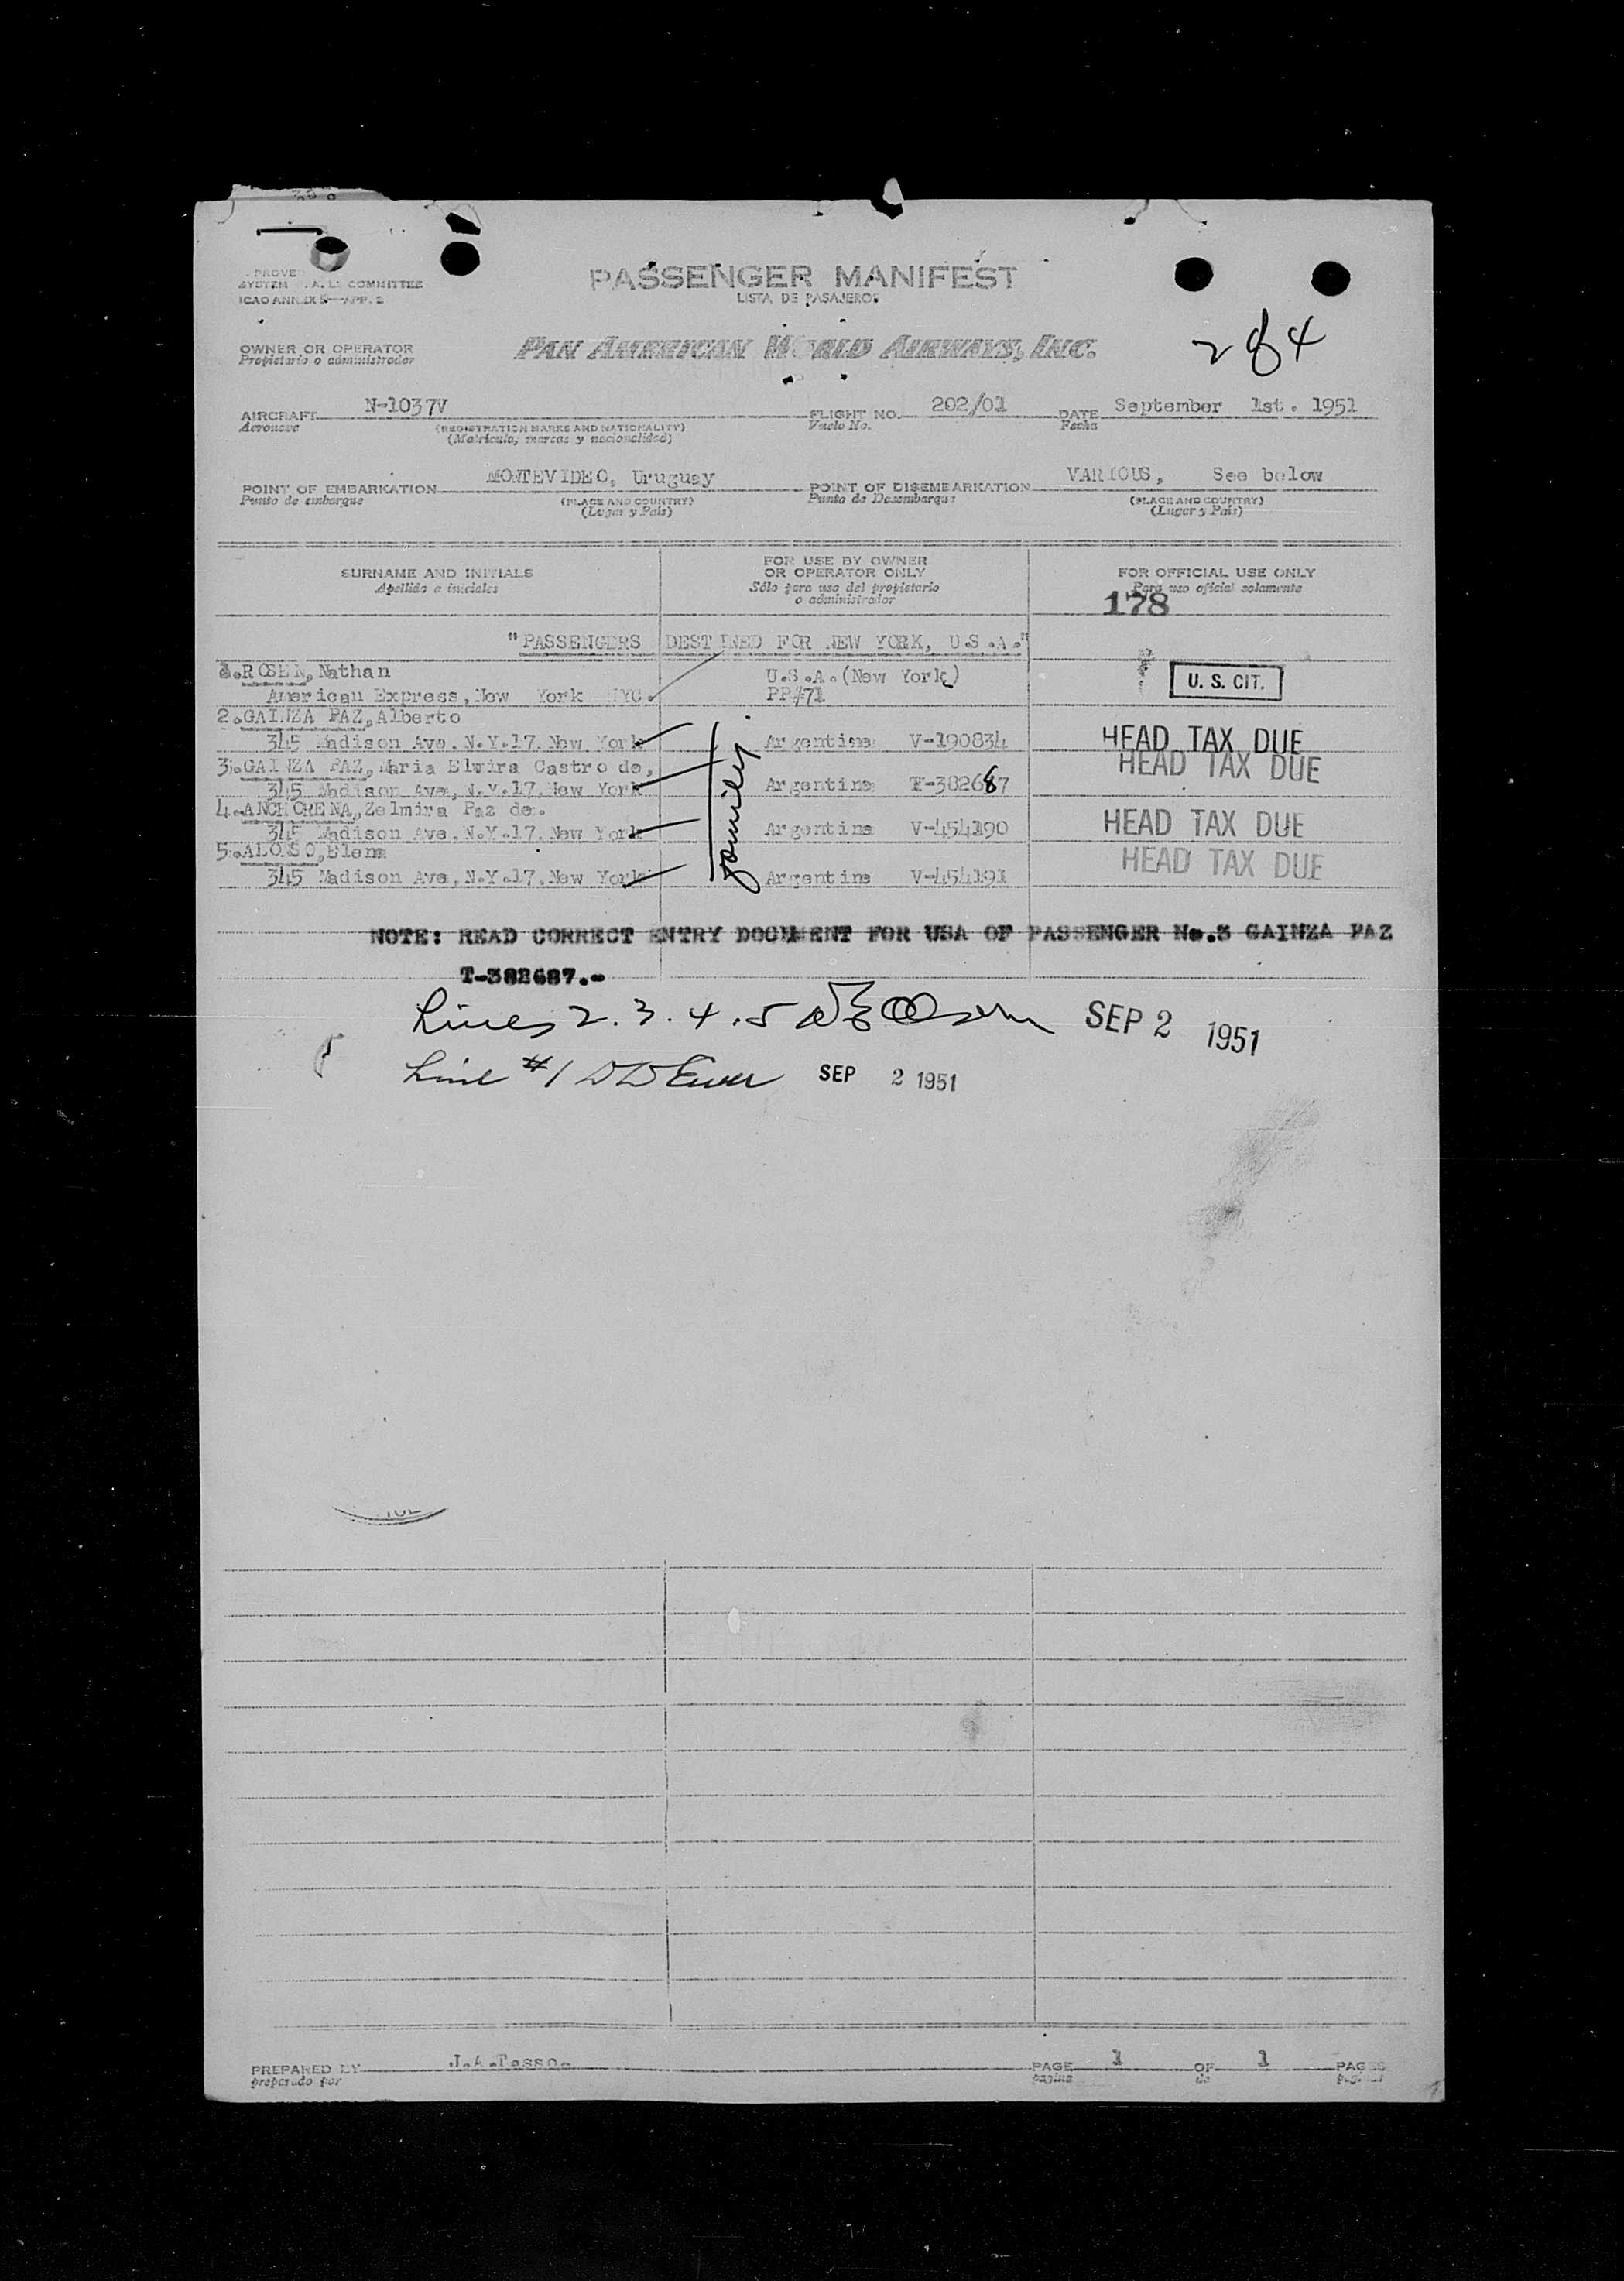 SYSTEM COMMITTEE
ICAO ANNEX
PASSENGER MANIFEST
LISTA DE PASAJEROS
284
OWNER OR OPERATOR
Propietario o administrador
PAN AMERICAN WORLD AIRWAYS, INC.
AIRCRAFT N-1037V FLIGHT NO. 202/01 DATE September 1st. 1951
Aeronave (REGISTRATION MARKS AND NATIONALITY) Vuelo No. Fecha
(Matricula, marcas y nacionalidad)
POINT OF EMBARKATION MONTEVIDEO, Uruguay POINT OF DISEMBARKATION VARIOUS, See below
Punto de embarque (PLACE AND COUNTRY) Punto de Desembarque (PLACE AND COUNTRY)
(Lugar y Pais) (Lugar y Pais)
SURNAME AND INITIALS
Apellido e iniciales
FOR USE BY OWNER
OR OPERATOR ONLY
Sólo para uso del propietario
o administrador
FOR OFFICIAL USE ONLY
Para uso oficial solamente
178
"PASSENGERS DESTINED FOR NEW YORK, U.S.A."
1.ROSEN, Nathan U.S.A.(New York)
American Express, New York NYC. PP#71 U. S. CIT.
2.GAINZA PAZ, Alberto
345 Madison Ave. N.Y.17. New York Argentine V-190834 HEAD TAX DUE
3.GAINZA PAZ, Maria Elvira Castro de, HEAD TAX DUE
345 Madison Ave, N.Y.17. New York Argentine T-382687
4.ANCHORENA, Zelmira Paz de.
345 Madison Ave. N.Y.17. New York Argentine V-454190 HEAD TAX DUE
5.ALONSO, Elena HEAD TAX DUE
345 Madison Ave. N.Y.17. New York Argentine V-454191
family
NOTE: READ CORRECT ENTRY DOCUMENT FOR USA OF PASSENGER No.3 GAINZA PAZ
T-382687.-
Lines 2. 3. 4. 5 SEP 2 1951
Line #1 SEP 2 1951
PREPARED BY J.A. PAGE 1 OF 1 PAGES
preparado por pagina de